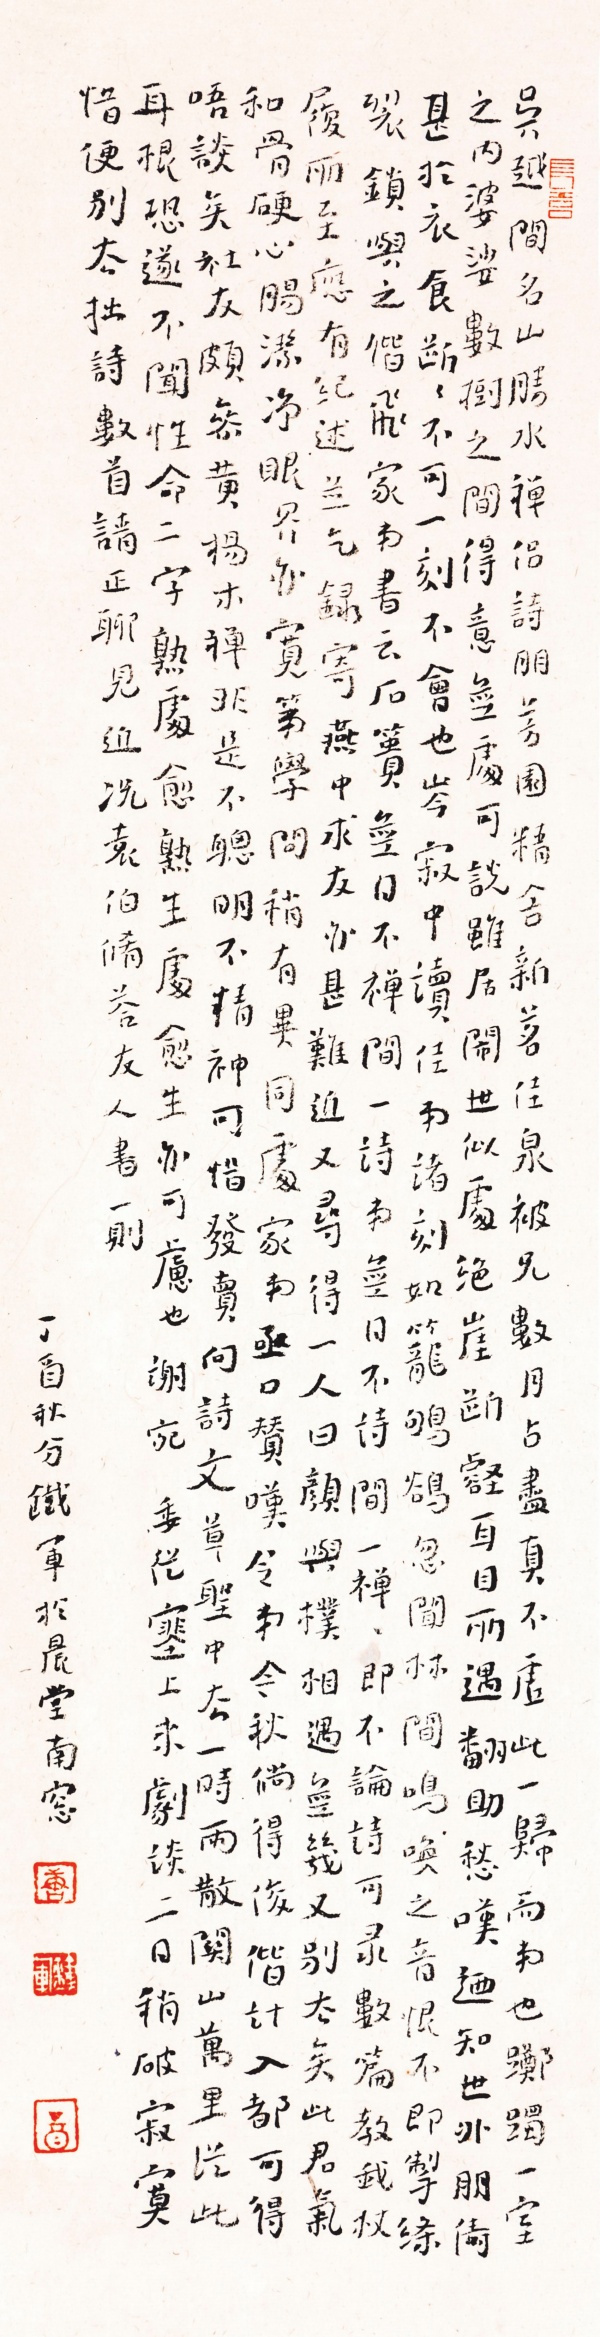 吳越間名山勝水禪侶詩朋芳園精舍新茗佳泉被兄數月占盡真不虛此一歸而弟也躑躅一室
之內婆娑數樹之間得意無處可說雖居鬧世似處絕崖斷壑耳目所遇翻助愁嘆迺知世外朋儔
甚於衣食斷斷不可一刻不會也岑寂中讀佳弟諸刻如籠鴝鵒忽聞林間鳴喚之音恨不即掣絛
裂鎖與之偕飛家弟書云石簣無日不禪間一詩弟無日不詩間一禪禪即不論詩可录數篇教我杖
履所至應有紀述並乞錄寄燕中求友亦甚難近又尋得一人曰顏與樸相遇無幾又別去矣此君氣
和骨硬心腸潔淨眼界亦寬第學問稍有異同處家弟亟口贊嘆今弟今秋倘得俊偕計入都可得
唔談矣社友頗參黃楊木禪非是不聰明不精神可惜發賣向詩文草聖中去一時雨散關山萬里從此
耳根恐遂不聞性命二字熟處愈熟生處愈生亦可慮也謝宛委從塞上來劇談二日稍破寂寞
惜便別去拙詩數首請正聊見近況袁伯修答友人書一則
丁酉秋分鐵軍於晨堂南窓